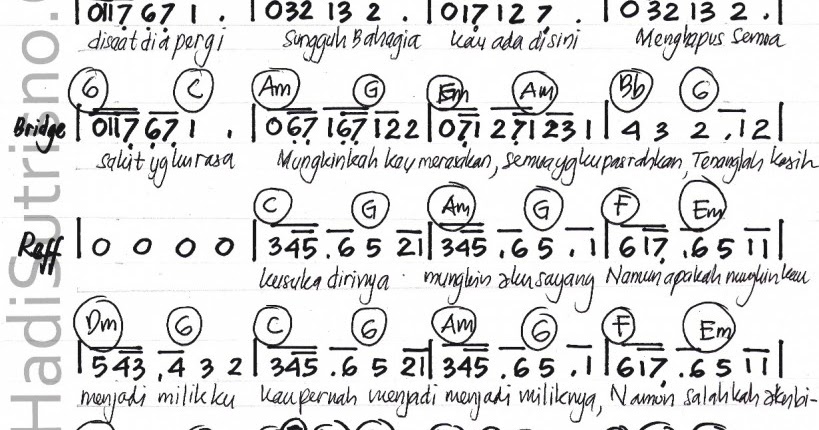 | 0117 67 1 . | 032 13 2 . | 017 12 7 . | 032 13 2 . |
disaat dia pergi Sungguh Bahagia kau ada disini Menghapus Semua
G C Am G Em Am Bb G
Bridge | 0117 67 1 . | 067 167 122 | 071 271 231 | 4 3 2 .12 |
Sakit yg kurasa Mungkinkah kau merasakan, Semua yg kupasrahkan, Tenanglah kasih
C G Am G F Em
Reff | 0 0 0 0 | 345 .6 5 21 | 345 .6 5 .1 | 617 .6 5 11 |
kusuka dirinya mungkin aku sayang Namun apakah mungkin kau
Dm G C G Am G F Em
| 543 .4 3 2 | 345 .6 5 21 | 345 .6 5 .1 | 617 .6 5 11 |
menjadi milikku kau pernah menjadi menjadi miliknya, Namun salahkah
HadiSutrisno.